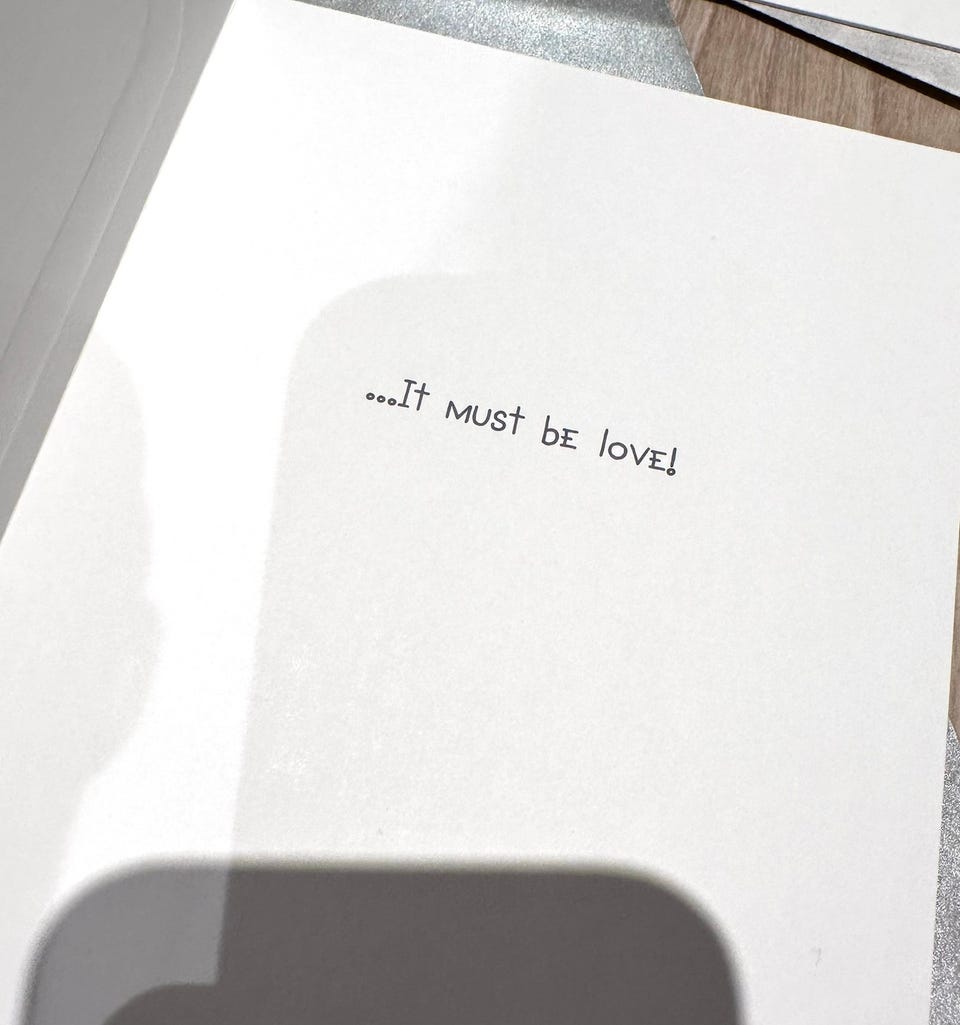 ...It must be love!